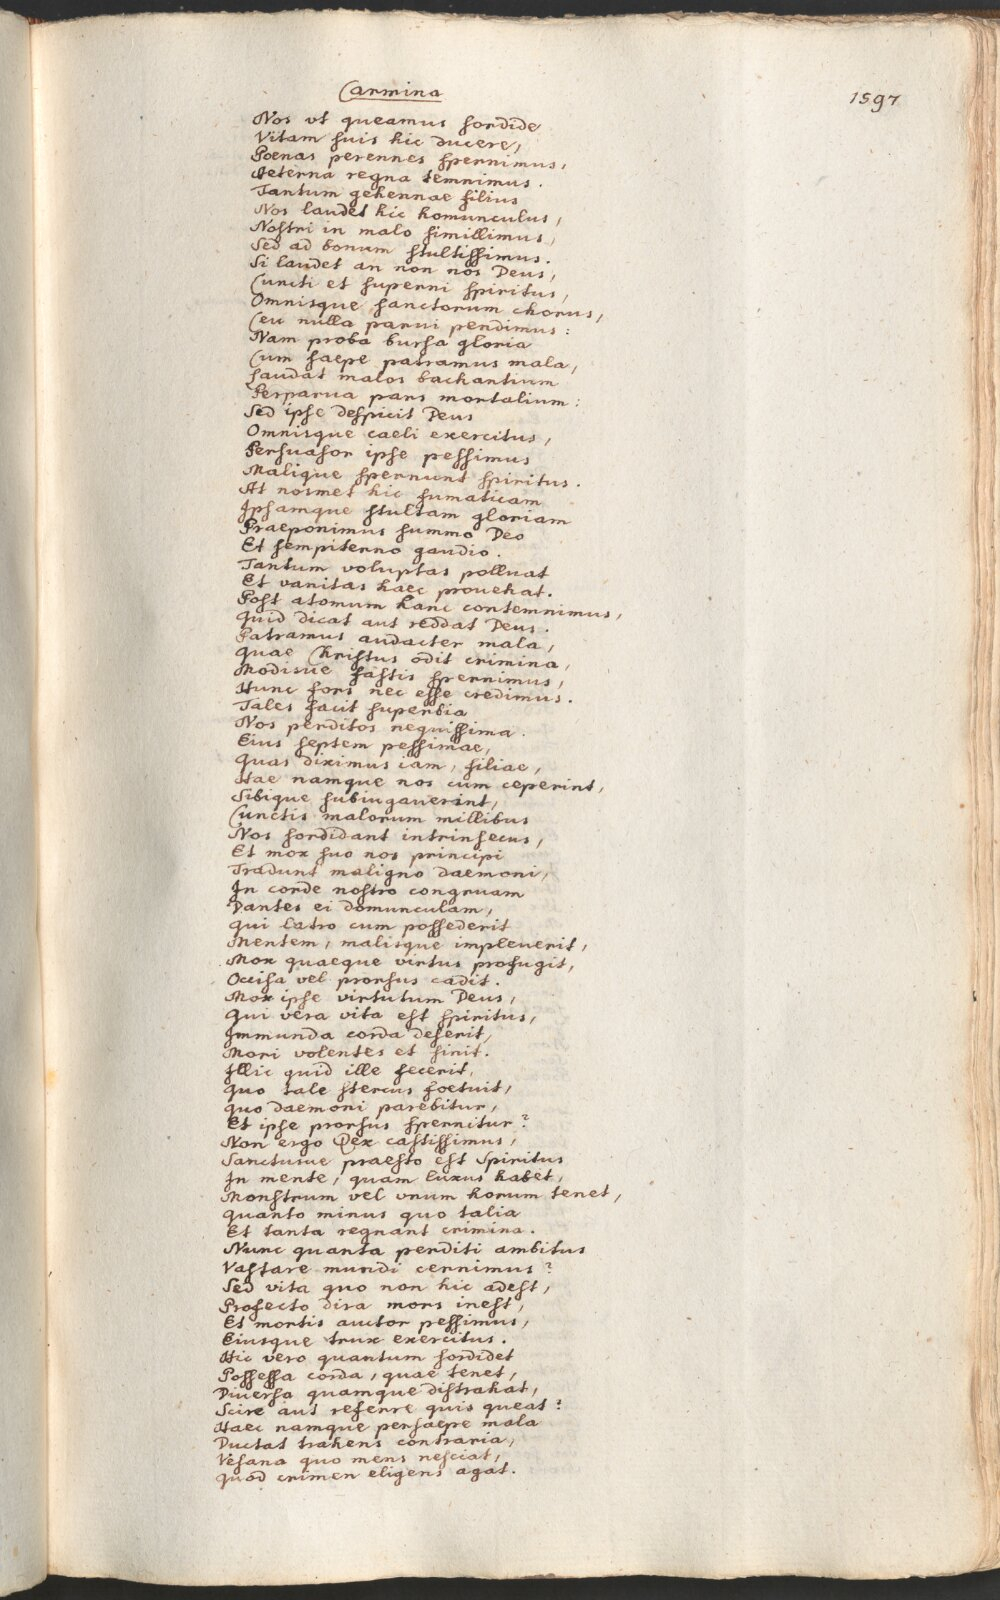 Carmina
1597
Nos ut queamus sordide
Vitam suis hic ducere,
Poenas perennes spernimus,
Aeterna regna temnimus.
Tantum gehennae filius
Nos laudet hic homunculus,
Nostri in malo simillimus,
Sed ad bonum stultissimus.
Si laudet an non nos Deus,
Cuncti et superni spiritus,
Omnisque sanctorum chorus,
Ceu nulla parui pendimus:
Nam proba bursa gloria
Cum saepe patramus mala,
Laudat malos bachantium
Perparua pars mortalium:
Sed ipse despicit Deus
Omnisque caeli exercitus,
Persuasor ipse pessimus
Malique spernunt spiritus.
At nosmet hic fumaticam
Ipsamque stultam gloriam
Praeponimus summo Deo
Et sempiterno gaudio.
Tantum voluptas polluat
Et vanitas haec prouehat.
Post atomum hanc contemnimus,
Quid dicat aut reddat Deus.
Patramus audacter mala,
Quae Christus odit crimina,
Modisue fastis spernimus,
Hunc fors nec esse credimus.
Tales facit superbia
Nos perditos nequissima.
Eius septem pessimae,
Quas diximus iam, filiae,
Hae namque nos cum ceperint,
Sibique subiugauerint,
Cunctis malorum millibus
Nos sordidant intrinsecus,
Et mox suo nos principi
Tradunt maligno daemoni,
In corde nostro congruam
Dantes ei domunculam,
Qui latro cum possederit
Mentem, malisque impleuerit,
Mox quaeque virtus profugit,
Occisa vel prorsus cadit.
Mox ipse virtutum Deus,
Qui vera vita est spiritus,
Immunda corda deserit,
Mori volentes et sinit.
Illic quid ille fecerit,
Quo tale stercus foetuit,
Quo daemoni parebitur,
Et ipse prorsus spernitur?
Non ergo Rex castissimus,
Sanctusue praesto est Spiritus
In mente, quam luxus habet,
Monstrum vel vnum horum tenet,
Quanto minus quo talia
Et tanta regnant crimina.
Nunc quanta perditi ambitus
Vastare mundi cernimus?
Sed vita quo non hic adest,
Profecto dira mors inest,
Et mortis auctor pessimus,
Eiusque trux exercitus.
Hic vero quantum sordidet
Possessa corda, quae tenet,
Diuersa quamque distrahat,
Scire aut referre quis queat?
Haec namque persaepe mala
Ductat trahens contraria,
Vesana quo mens nesciat,
Quod crimen eligens agat.